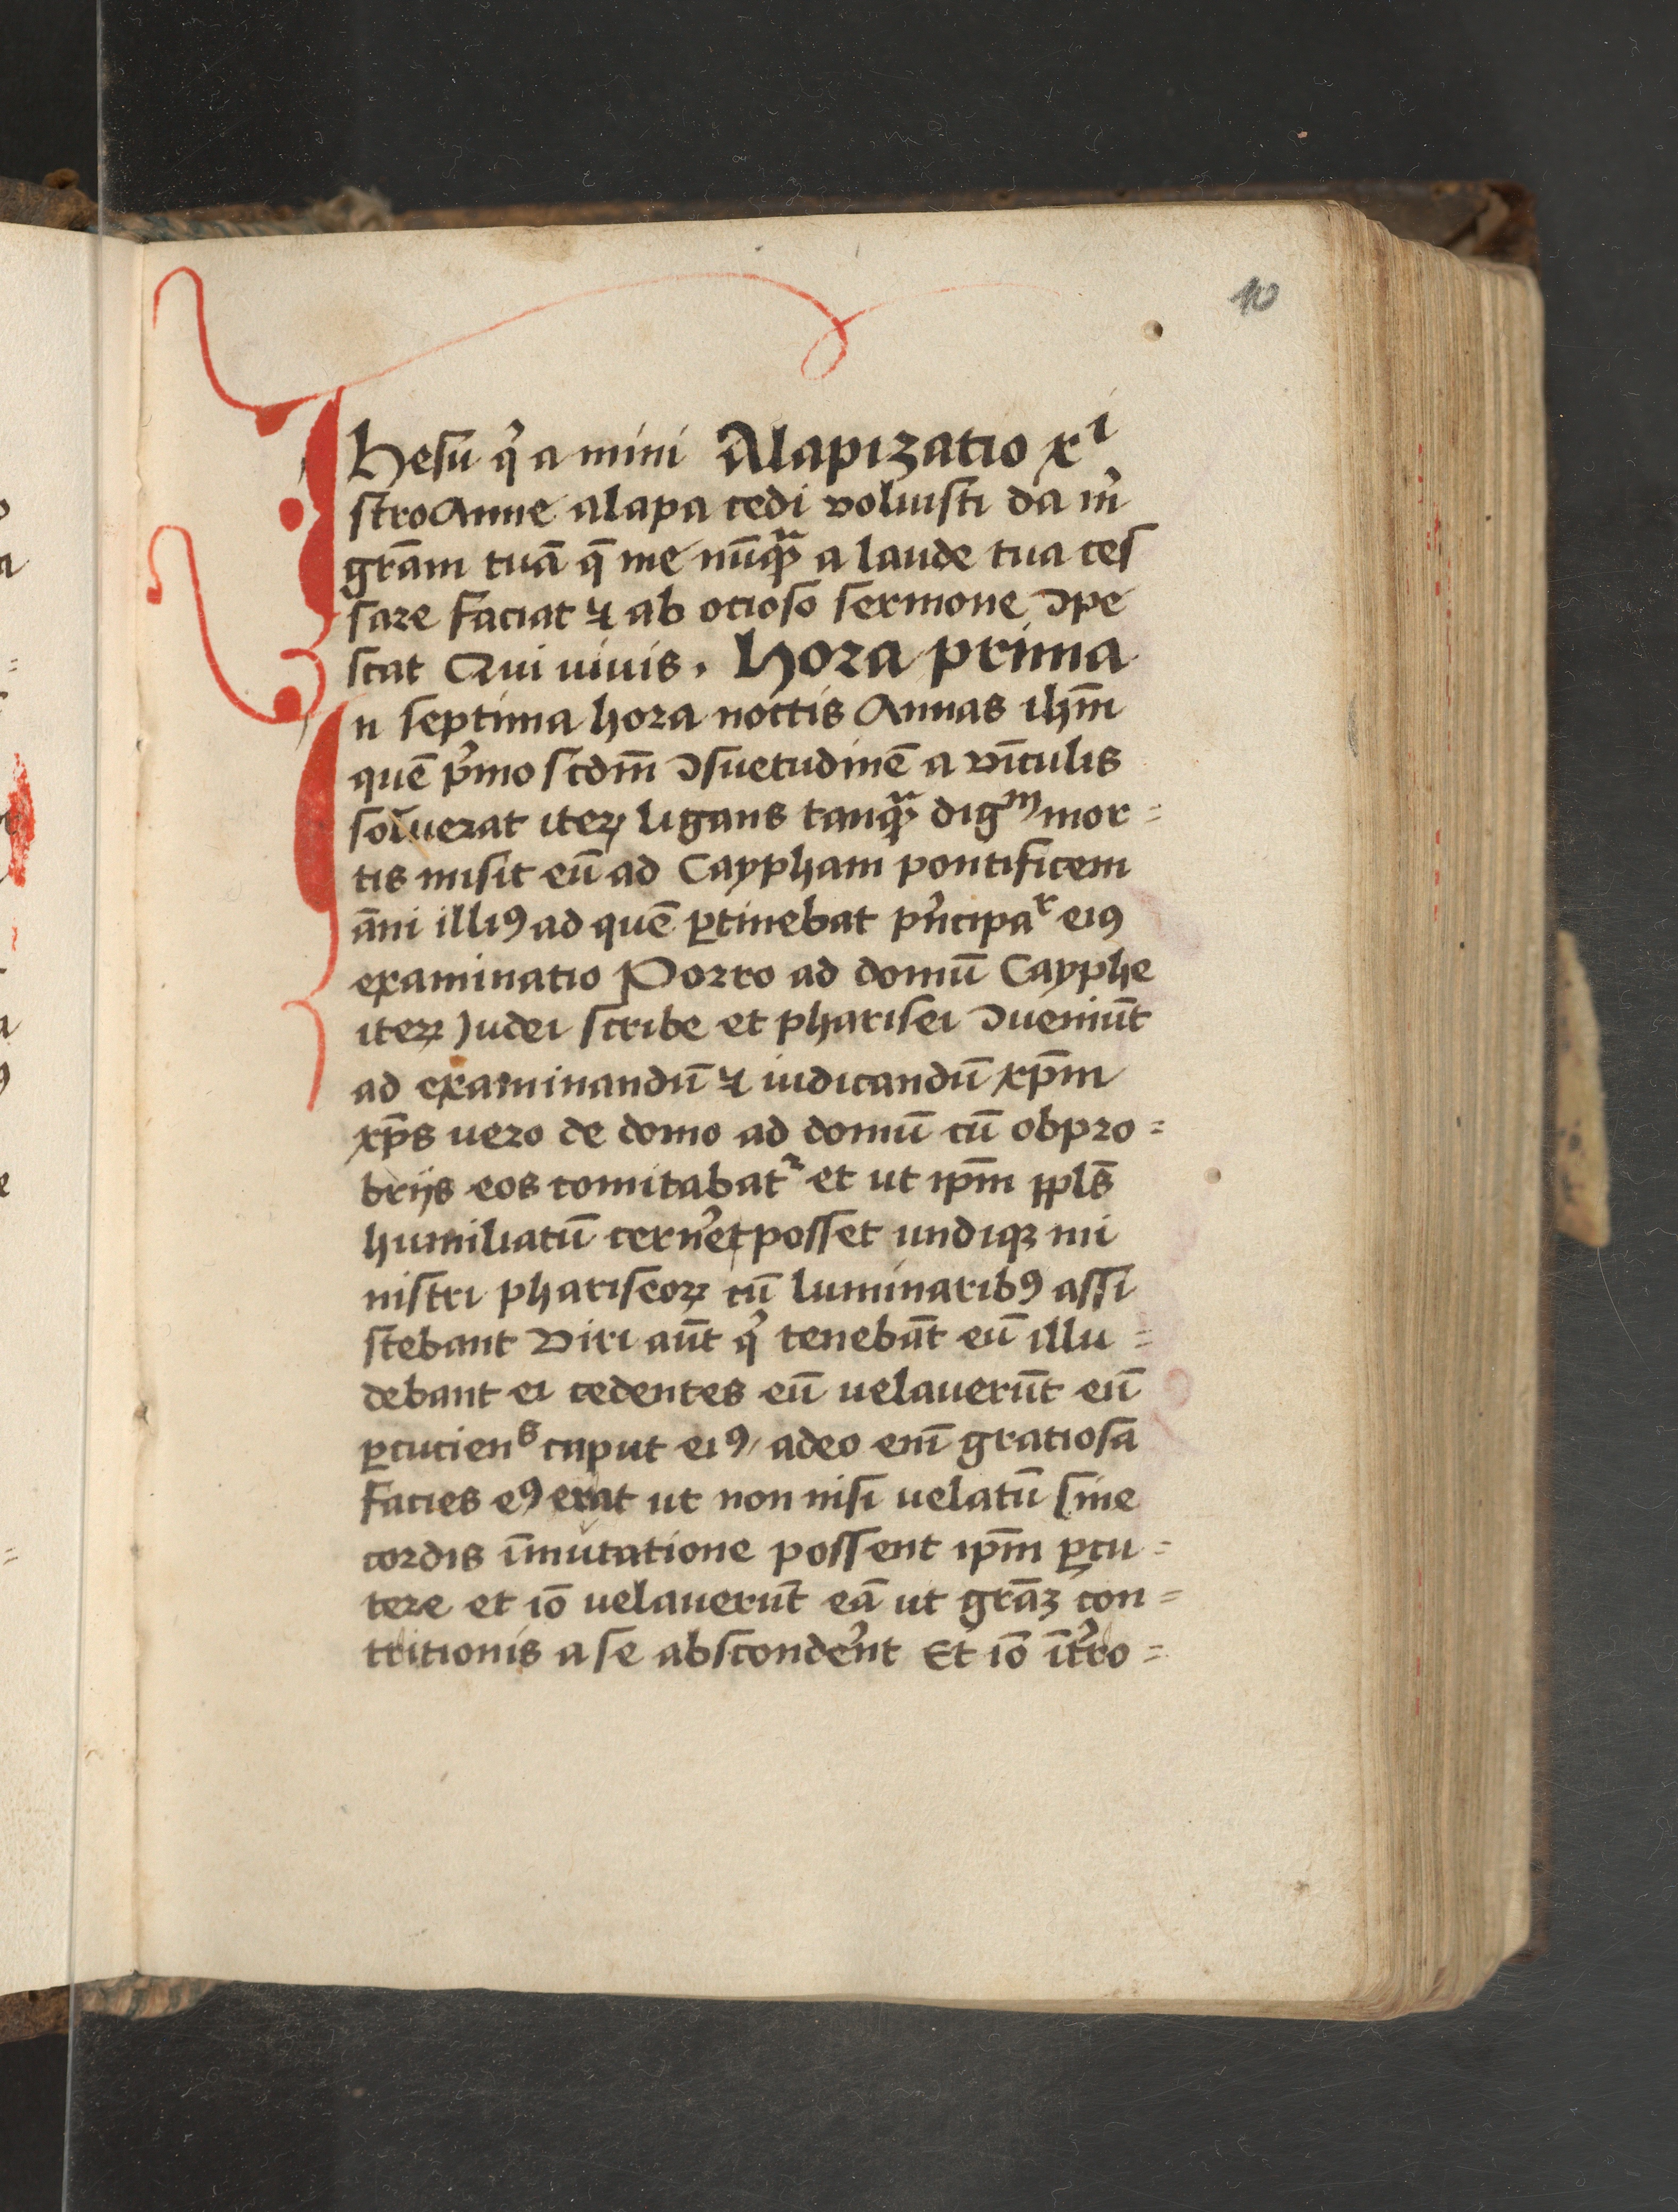 10
Ihesu qͥ a mini Alapizatio xⁱ
stro Anne alapa cedi voluisti da mͥ
gr̄am tuā q̄ me nūqᷓꝫ a laude tua ces
sare faciat ⁊ ab ocioso sermone ꝯpe
scat Qui viuis. Hora prima
In septima hora noctis Annas ihm̄
quē pͥmo scdm̄ ꝯsuetudinē a vīculis
soluerat iteꝝ ligans tanqᷓꝫ digᵐ mor=
tis misit eū ad Caypham pontificem
āni illiꝰ ad quē ꝑtinebat pͥncipaʳ eiꝰ
examinatio Porro ad domū Cayphe
iteꝝ Judei scribe et pharisei ꝯueniūt
ad examinandū ⁊ iudicandū xp̄m
xp̄s uero de domo ad domū cū obpro=
brijs eos comitabatᷣ et ut ip̄m ppl̄s
humiliatū cern̾et posset undiqꝫ mi
nistri phariseoꝝ cū luminaribꝰ assi
stebant Viri aūt qͥ tenebāt eū illu=
debant ei cedentes eū uelauerūt eū
ꝑcucienˢ caput eiꝰ adeo eni᷑ gratiosa
facies eꝰ erat ut non nisi uelatū sine
cordis īmutatione possent ip̄m ꝑcu=
tere et iō uelauerūt eā ut gr̄aꝫ con=
tritionis a se abscond̾ent Et iō īt̾ro=